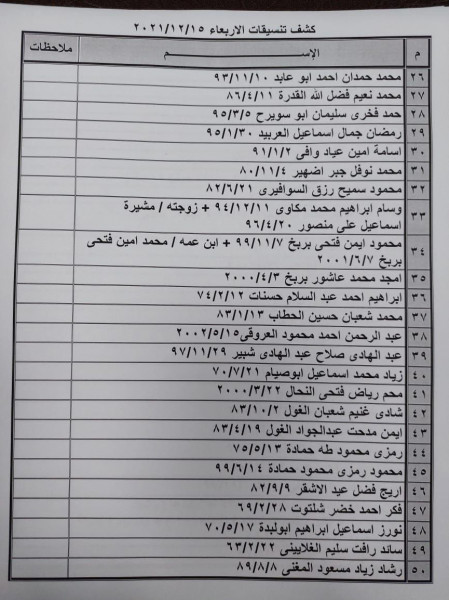 كشف تنسيقات الاربعاء ٢٠٢١/١٢/١٥
م الإســـــم ملاحظات
٢٦ محمد حمدان احمد ابو عابد ٩٣/١١/١٠
٢٧ محمد نعيم فضل الله القدرة ٨٦/٤/١١
٢٨ حمد فخرى سليمان ابو سويرح ٩٥/٣/٥
٢٩ رمضان جمال اسماعيل العربيد ٩٥/١/٣٠
٣٠ اسامة امين عياد وافى ٩١/١/٢
٣١ محمد نوفل جبر اضهير ٨٠/١١/٤
٣٢ محمود سميح رزق السوافيرى ٨٢/٦/٢١
٣٣ وسام ابراهيم محمد مكاوى ٩٤/١٢/١١ + زوجته / مشيرة
اسماعيل على منصور ٩٦/٤/٢٠
٣٤ محمود ايمن فتحى بربخ ٩٩/١١/٧ + ابن عمه / محمد امين فتحى
بربخ ٢٠٠١/٦/٧
٣٥ امجد محمد عاشور بربخ ٢٠٠٠/٤/٣
٣٦ ابراهيم احمد عبد السلام حسنات ٧٤/٢/١٢
٣٧ محمد شعبان حسين الحطاب ٨٣/١/١٣
٣٨ عبد الرحمن احمد محمود العروقى ٢٠٠٢/٥/١٥
٣٩ عبد الهادى صلاح عبد الهادى شبير ٩٧/١١/٢٩
٤٠ زياد محمد اسماعيل ابوصيام ٧٠/٧/٢١
٤١ محم رياض فتحى النحال ٢٠٠٠/٣/٢٢
٤٢ شادى غنيم شعبان الغول ٨٣/١٠/٢
٤٣ ايمن مدحت عبدالجواد الغول ٨٣/٤/١٩
٤٤ رمزى محمود طه حمادة ٧٥/٥/١٣
٤٥ محمود رمزى محمود حمادة ٩٩/٦/١٤
٤٦ اريج فضل عيد الاشقر ٨٢/٩/٩
٤٧ فكر احمد خضر شلتوت ٦٩/٢/٢٨
٤٨ نورز اسماعيل ابراهيم ابولبدة ٧٠/٥/١٧
٤٩ ساند رافت سليم الغلايينى ٦٣/٢/٢٢
٥٠ رشاد زياد مسعود المغنى ٨٩/٨/٨